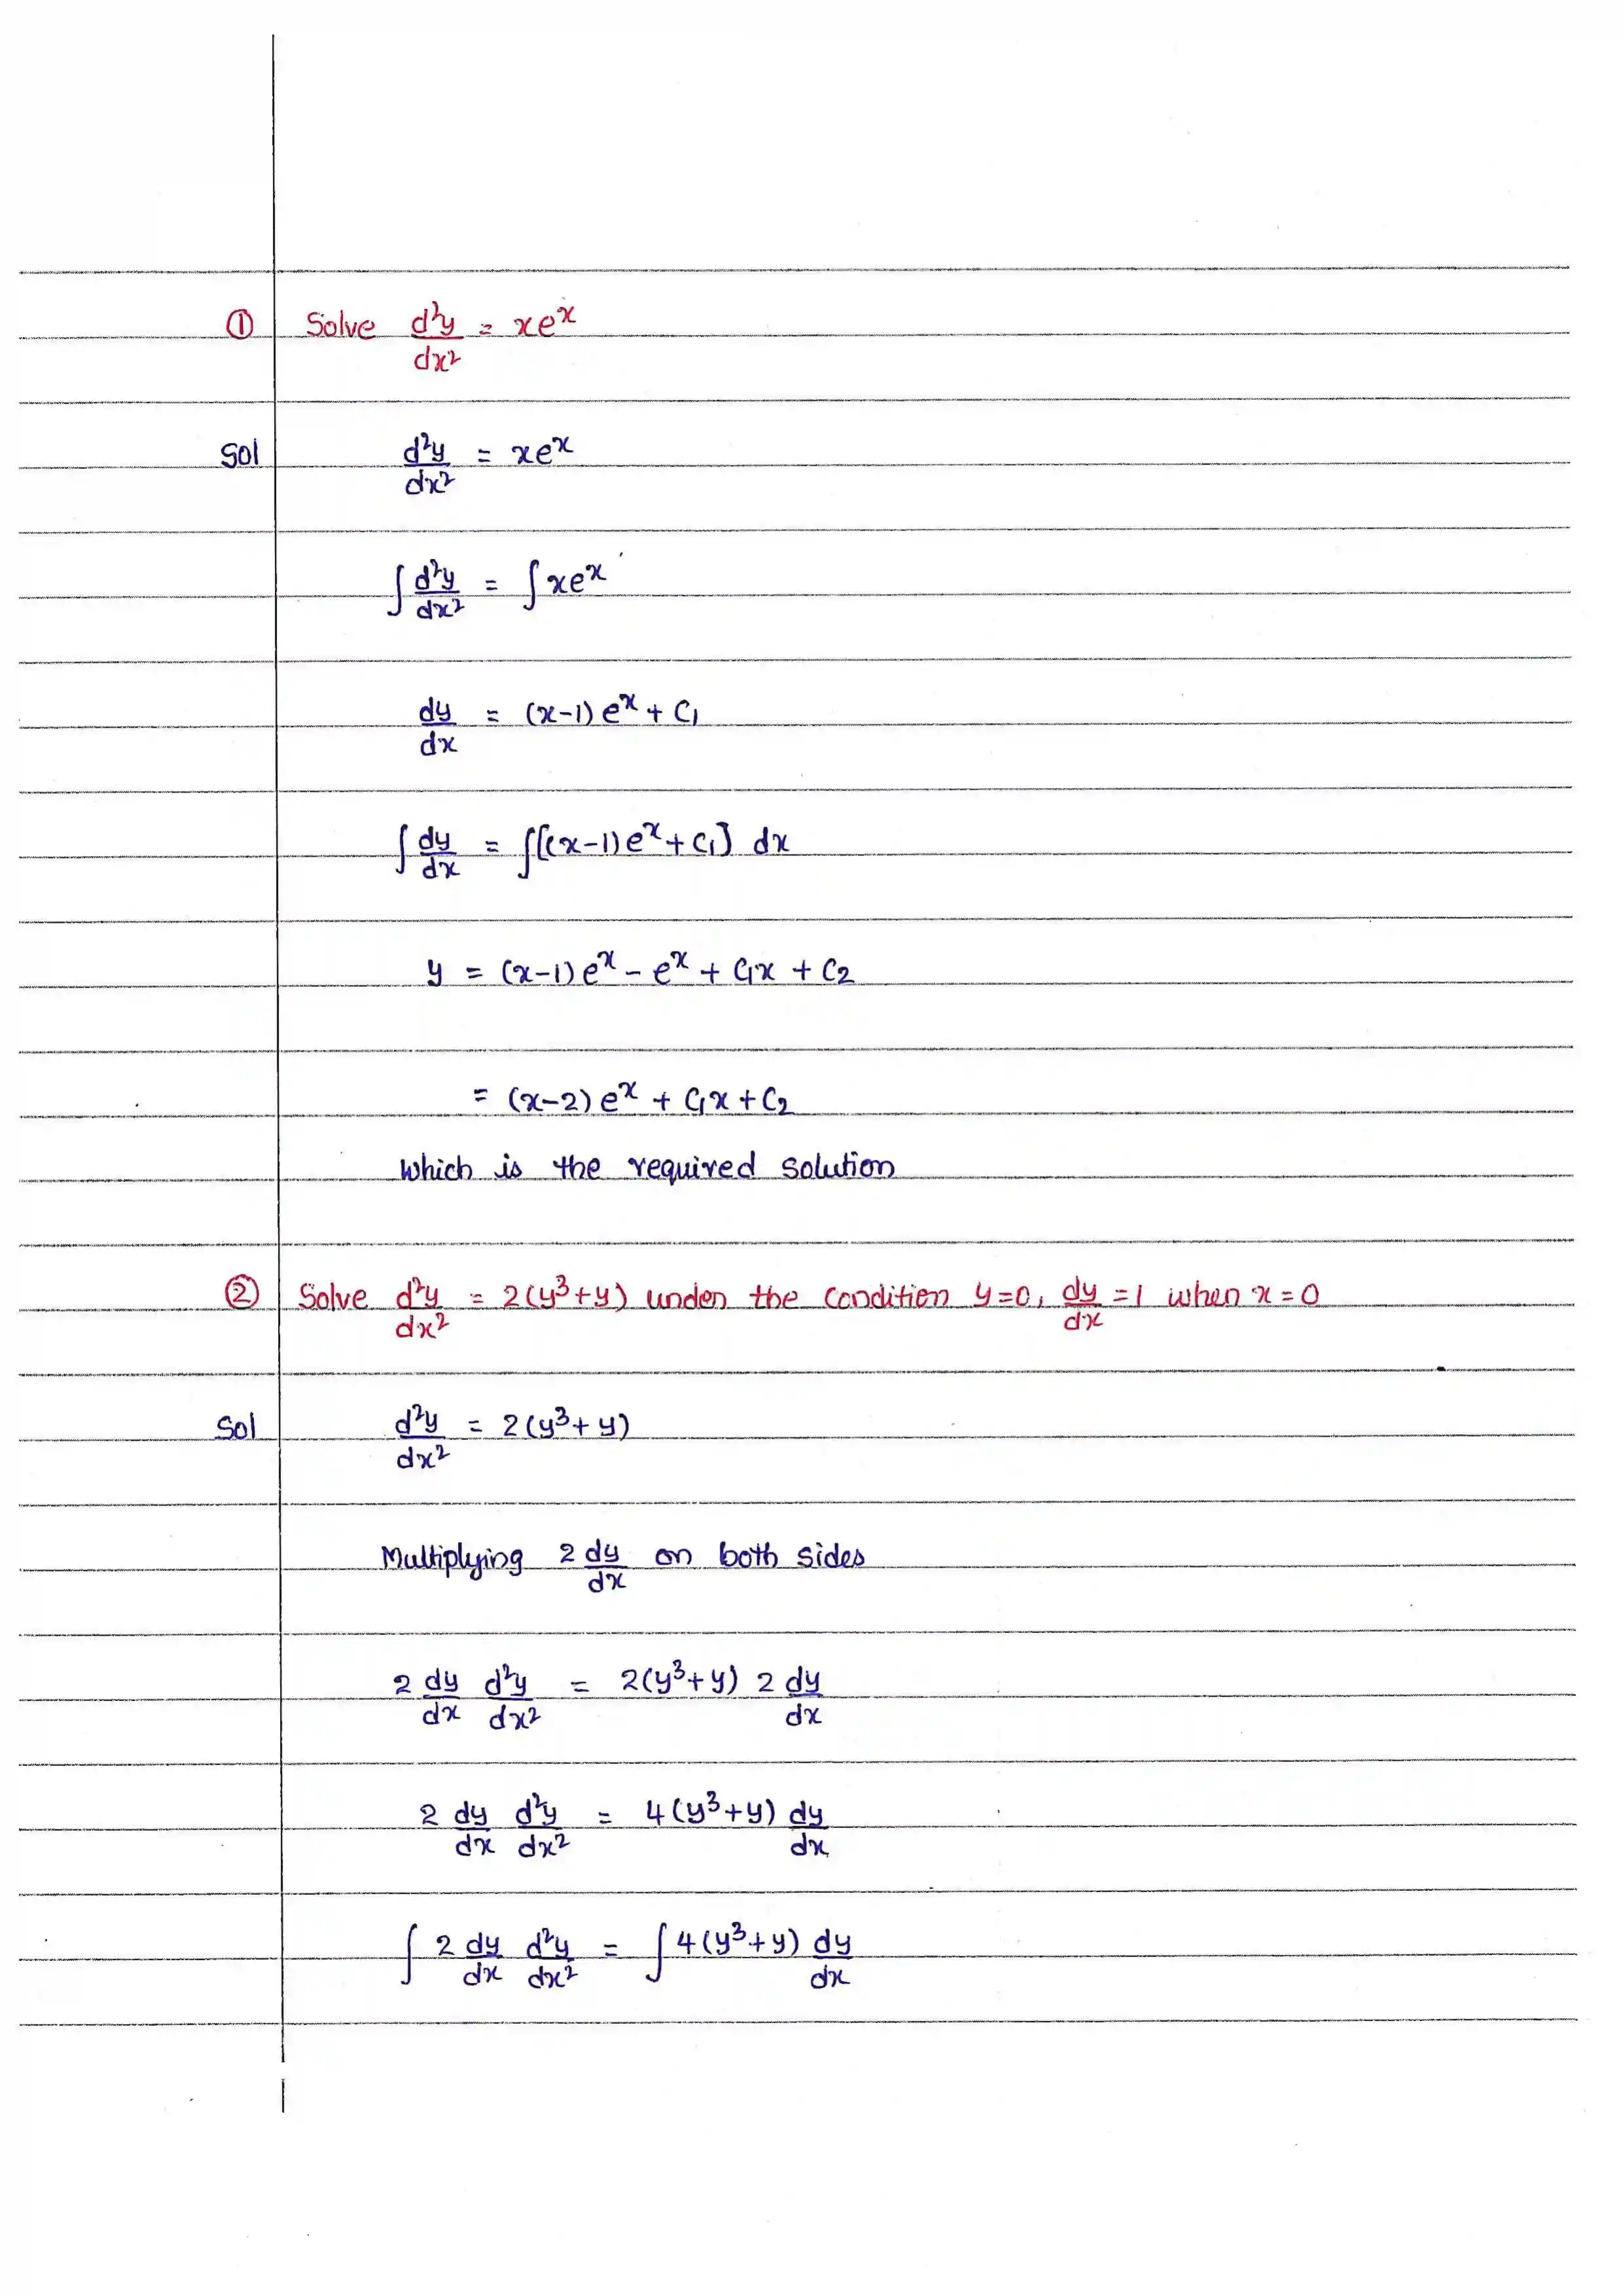 ① Solve d²y/dx² = xeˣ
Sol d²y/dx² = xeˣ
∫ d²y/dx² = ∫ xeˣ
dy/dx = (x-1) eˣ + C₁
∫ dy/dx = ∫[(x-1) eˣ + C₁] dx
y = (x-1) eˣ - eˣ + C₁x + C₂
= (x-2) eˣ + C₁x + C₂
which is the required solution
② Solve d²y/dx² = 2(y³+y) under the condition y=0, dy/dx =1 when x = 0
Sol d²y/dx² = 2(y³+y)
Multiplying 2 dy/dx on both sides
2 dy/dx d²y/dx² = 2(y³+y) 2 dy/dx
2 dy/dx d²y/dx² = 4(y³+y) dy/dx
∫ 2 dy/dx d²y/dx² = ∫ 4(y³+y) dy/dx